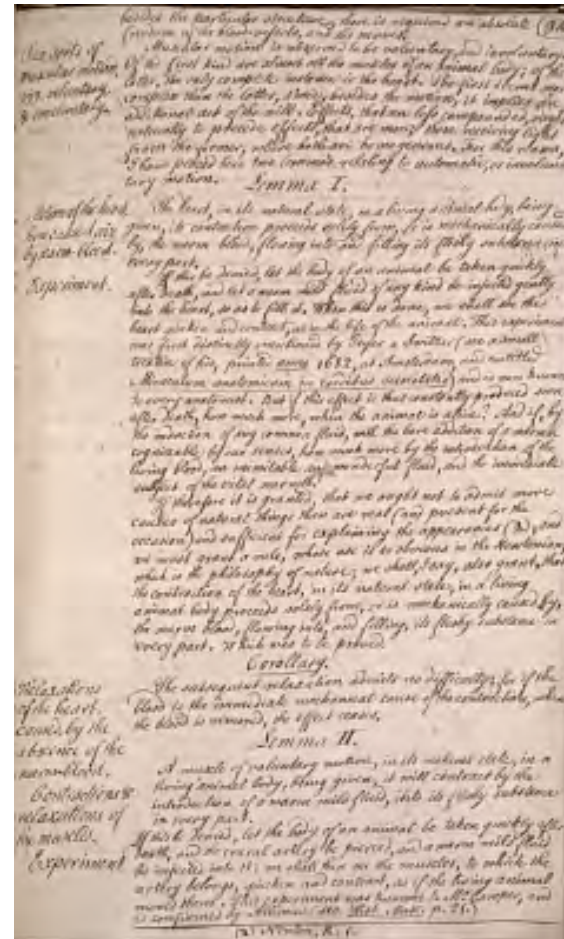 besides the particular structure, there is required an absolute
freedom of the blood-vessels, and the nerves.
Two sorts of
muscular motion,
viz. voluntary,
& involuntary.
Muscular motion is observed to be voluntary, and involuntary.
Of the first kind are almost all the muscles of an animal body; of the
latter, the only complete instance is the heart. The first is most
complex than the latter, since, besides the motion, it implies an
additional act of the will. Effects, that are less compounded,
naturally to precede effects, that are more those receiving light
from the former, where both are homogeneous. For this reason,
I have placed here two Lemmas, relating to automatic, or involun-
tary motion.
Lemma I.
Action of the heart
by warm blood.
Experiment.
The heart, in its natural state, in a living animal body, being
given, its contraction proceeds solely from, or is mechanically caused
by, the warm blood, flowing into and filling its fleshy substance in
every part.
If this be denied, let the body of an animal be taken quickly
after death, and let a warm mild fluid of any kind be injected gently
into the heart, so as to fill it. When this is done, we shall see the
heart quicken and contract, as in the life of the animal. This experiment
was first distinctly mentioned by
treatise of his, printed anno 1682, at Amsterdam, and entitled
and is now known
to every anatomist. But if this effect is thus constantly produced soon
after death, how much more, when the animal is alive? And if, by
the injection of any common fluid, with the bare addition of a warmth
cognizable by our senses, how much more by the introduction of the
living blood, an inimitable and wonderful fluid, and the immediate
subject of the vital warmth.
If therefore it is granted, that we ought not to admit more
causes of natural things than are real (and present for the
occasion) and sufficient for explaining the appearances (a), and
we must grant a rule, whose use is so obvious in the Newtonian,
which is the philosophy of nature; we shall, I say, also grant, that
the contraction of the heart, in its natural state, in a living
animal body proceeds solely from, or is mechanically caused by,
the warm blood, flowing into, and filling, its fleshy substance in
every part. Which was to be proved.
Corollary.
Relaxations
of the heart
caused by the
absence of the
warm blood.
The subsequent relaxation admits no difficulty; for if the
blood is the immediate mechanical cause of the contraction, when
the blood is removed, the effect ceases.
Lemma II.
Contractions &
relaxations of
the muscles.
Experiment
A muscle of voluntary motion, in its natural state, in a
living animal body, being given, it will contract by the
introduction of a warm mild fluid, into its fleshy substance
in every part.
If this be denied, let the body of an animal be taken quickly after
death, and the crural artery be pierced, and a warm mild fluid
be injected into it: we shall then see the muscles, to which the
artery belongs, quicken and contract, as if the living animal
moved them. This experiment was known to Mr. Cowper, and
is confirmed by
(a) Newton,